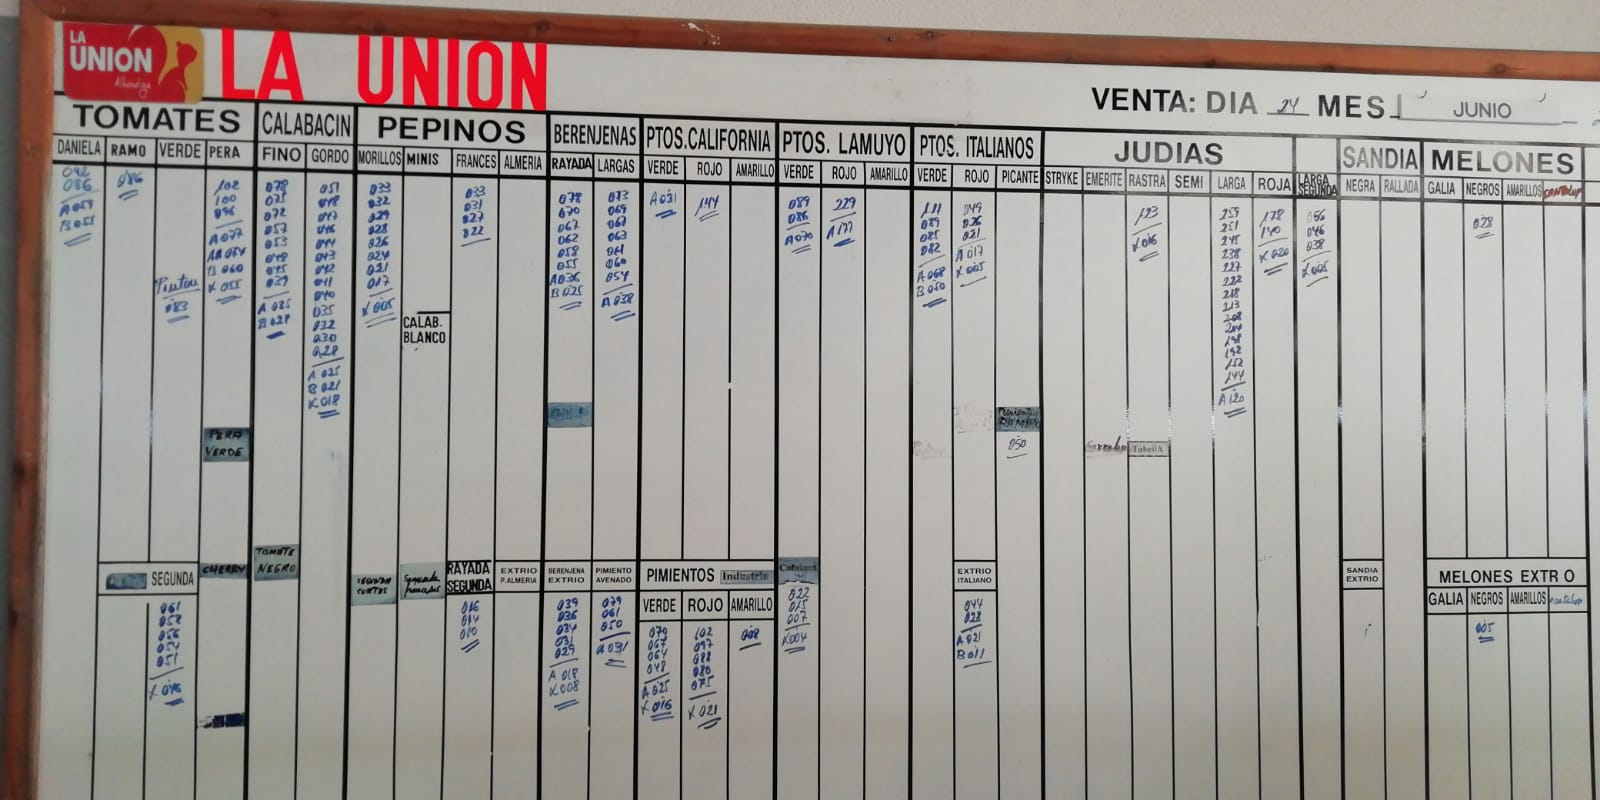 LA UNION Alhóndiga
LA UNION
VENTA: DIA 24 MES JUNIO
TOMATES
CALABACIN
PEPINOS
BERENJENAS
PTOS.CALIFORNIA
PTOS. LAMUYO
PTOS. ITALIANOS
JUDIAS
SANDIA
MELONES
DANIELA
RAMO
VERDE
PERA
FINO
GORDO
MORILLOS
MINIS
FRANCES
ALMERIA
RAYADA
LARGAS
VERDE
ROJO
AMARILLO
VERDE
ROJO
AMARILLO
VERDE
ROJO
PICANTE
STRYKE
EMERITE
RASTRA
SEMI
LARGA
ROJA
LARGA SEGUNDA
NEGRA
RALLADA
GALIA
NEGROS
AMARILLOS
092
086
A 059
B 051
086
Pintón
083
102
100
096
A 077
AA 064
B 060
K 055
078
075
072
057
053
048
045
039
A 035
B 028
051
048
047
046
044
043
042
041
040
035
032
030
028
A 025
B 021
K 018
033
032
029
028
026
024
021
017
K 005
CALAB.
BLANCO
033
031
027
022
078
070
067
062
058
055
A 036
B 025
073
069
067
063
061
060
054
A 038
A 031
144
089
086
A 070
229
A 177
111
089
085
082
A 068
B 050
049
026
021
A 017
K 005
050
123
K 016
TabellA
259
251
245
238
227
222
218
213
208
204
198
192
152
144
A 120
178
140
K 020
056
046
038
K 005
028
PERA
VERDE
SEGUNDA
CHERRY
TOMATE
NEGRO
SEGUNDA
CORTOS
Segunda
frances
RAYADA
SEGUNDA
EXTRIO
P.ALMERIA
BERENJENA
EXTRIO
PIMIENTO
AVENADO
PIMIENTOS Industria
VERDE
ROJO
AMARILLO
EXTRIO
ITALIANO
SANDIA
EXTRIO
MELONES EXTR O
GALIA
NEGROS
AMARILLOS
061
058
056
054
051
K 046
016
014
010
039
036
034
031
029
A 018
K 008
079
061
050
A 031
070
067
064
048
A 025
K 016
102
097
088
080
075
K 021
008
022
015
007
K 004
044
028
A 021
B 011
005